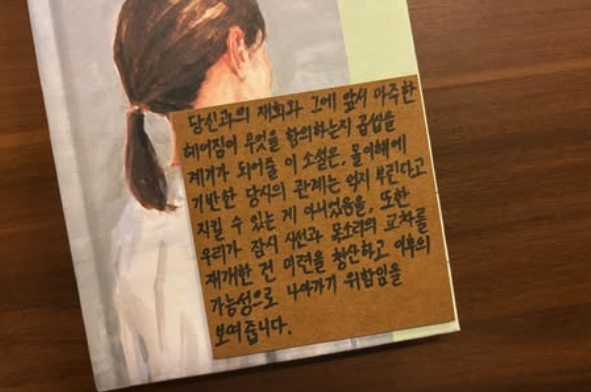 당신과의 재회와 그에 앞서 마주한
헤어짐이 무엇을 합의하는지 곱씹을
계기가 되어줄 이 소설은, 몰이해에
기반한 당시의 관계는 억지 부린다고
지킬 수 있는 게 아니었음을, 또한
우리가 잠시 시선과 목소리의 교차를
재개한 건 미련을 청산하고 이후의
가능성으로 나아가기 위함임을
보여줍니다.